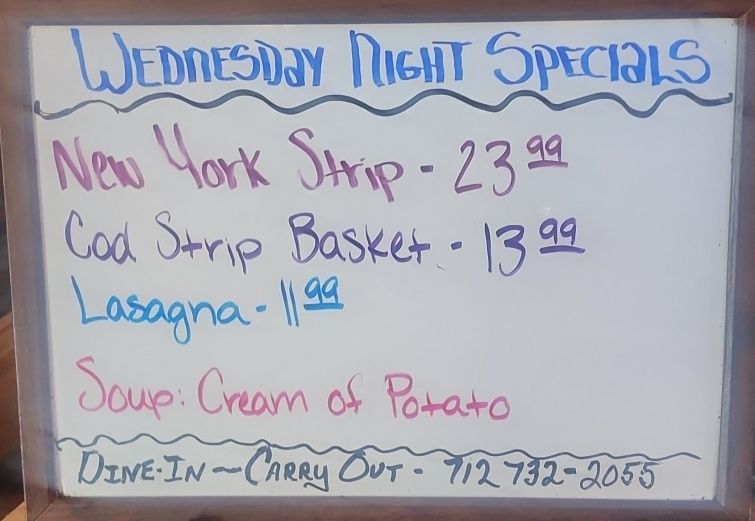 WEDNESDAY NIGHT SPECIALS
New York Strip - 23 99
Cod Strip Basket - 13 99
Lasagna - 11 99
Soup: Cream of Potato
DINE-IN ~ CARRY OUT - 712 732-2055